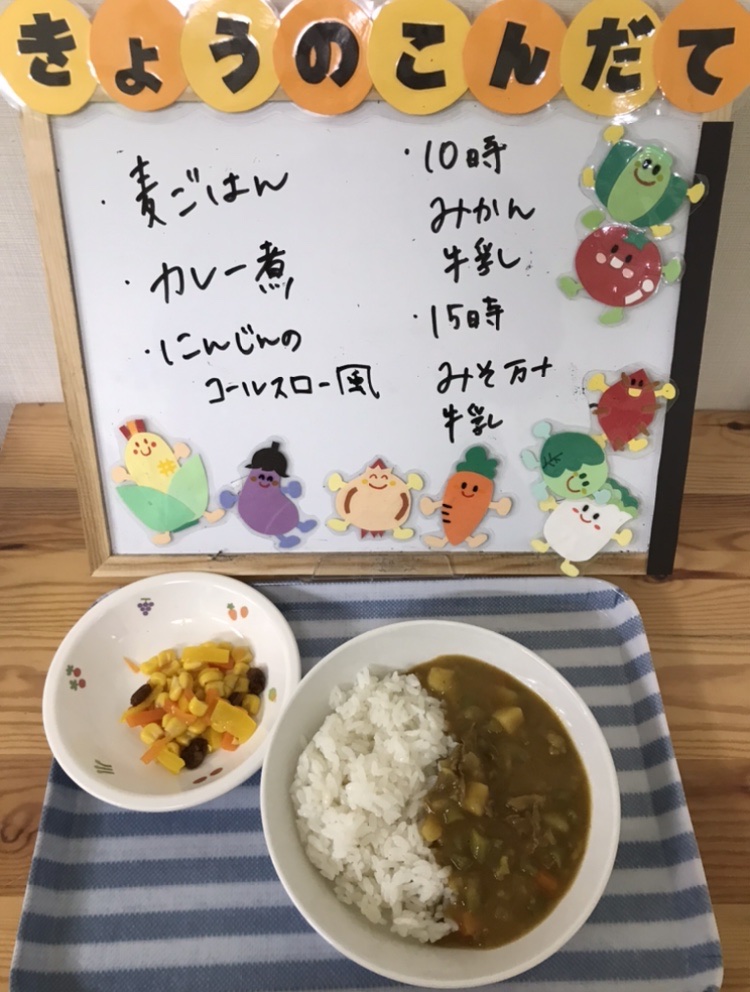 きょうのこんだて
・麦ごはん
・カレー煮
・にんじんの
コールスロー風
・10時
みかん
牛乳
・15時
みそ万十
牛乳